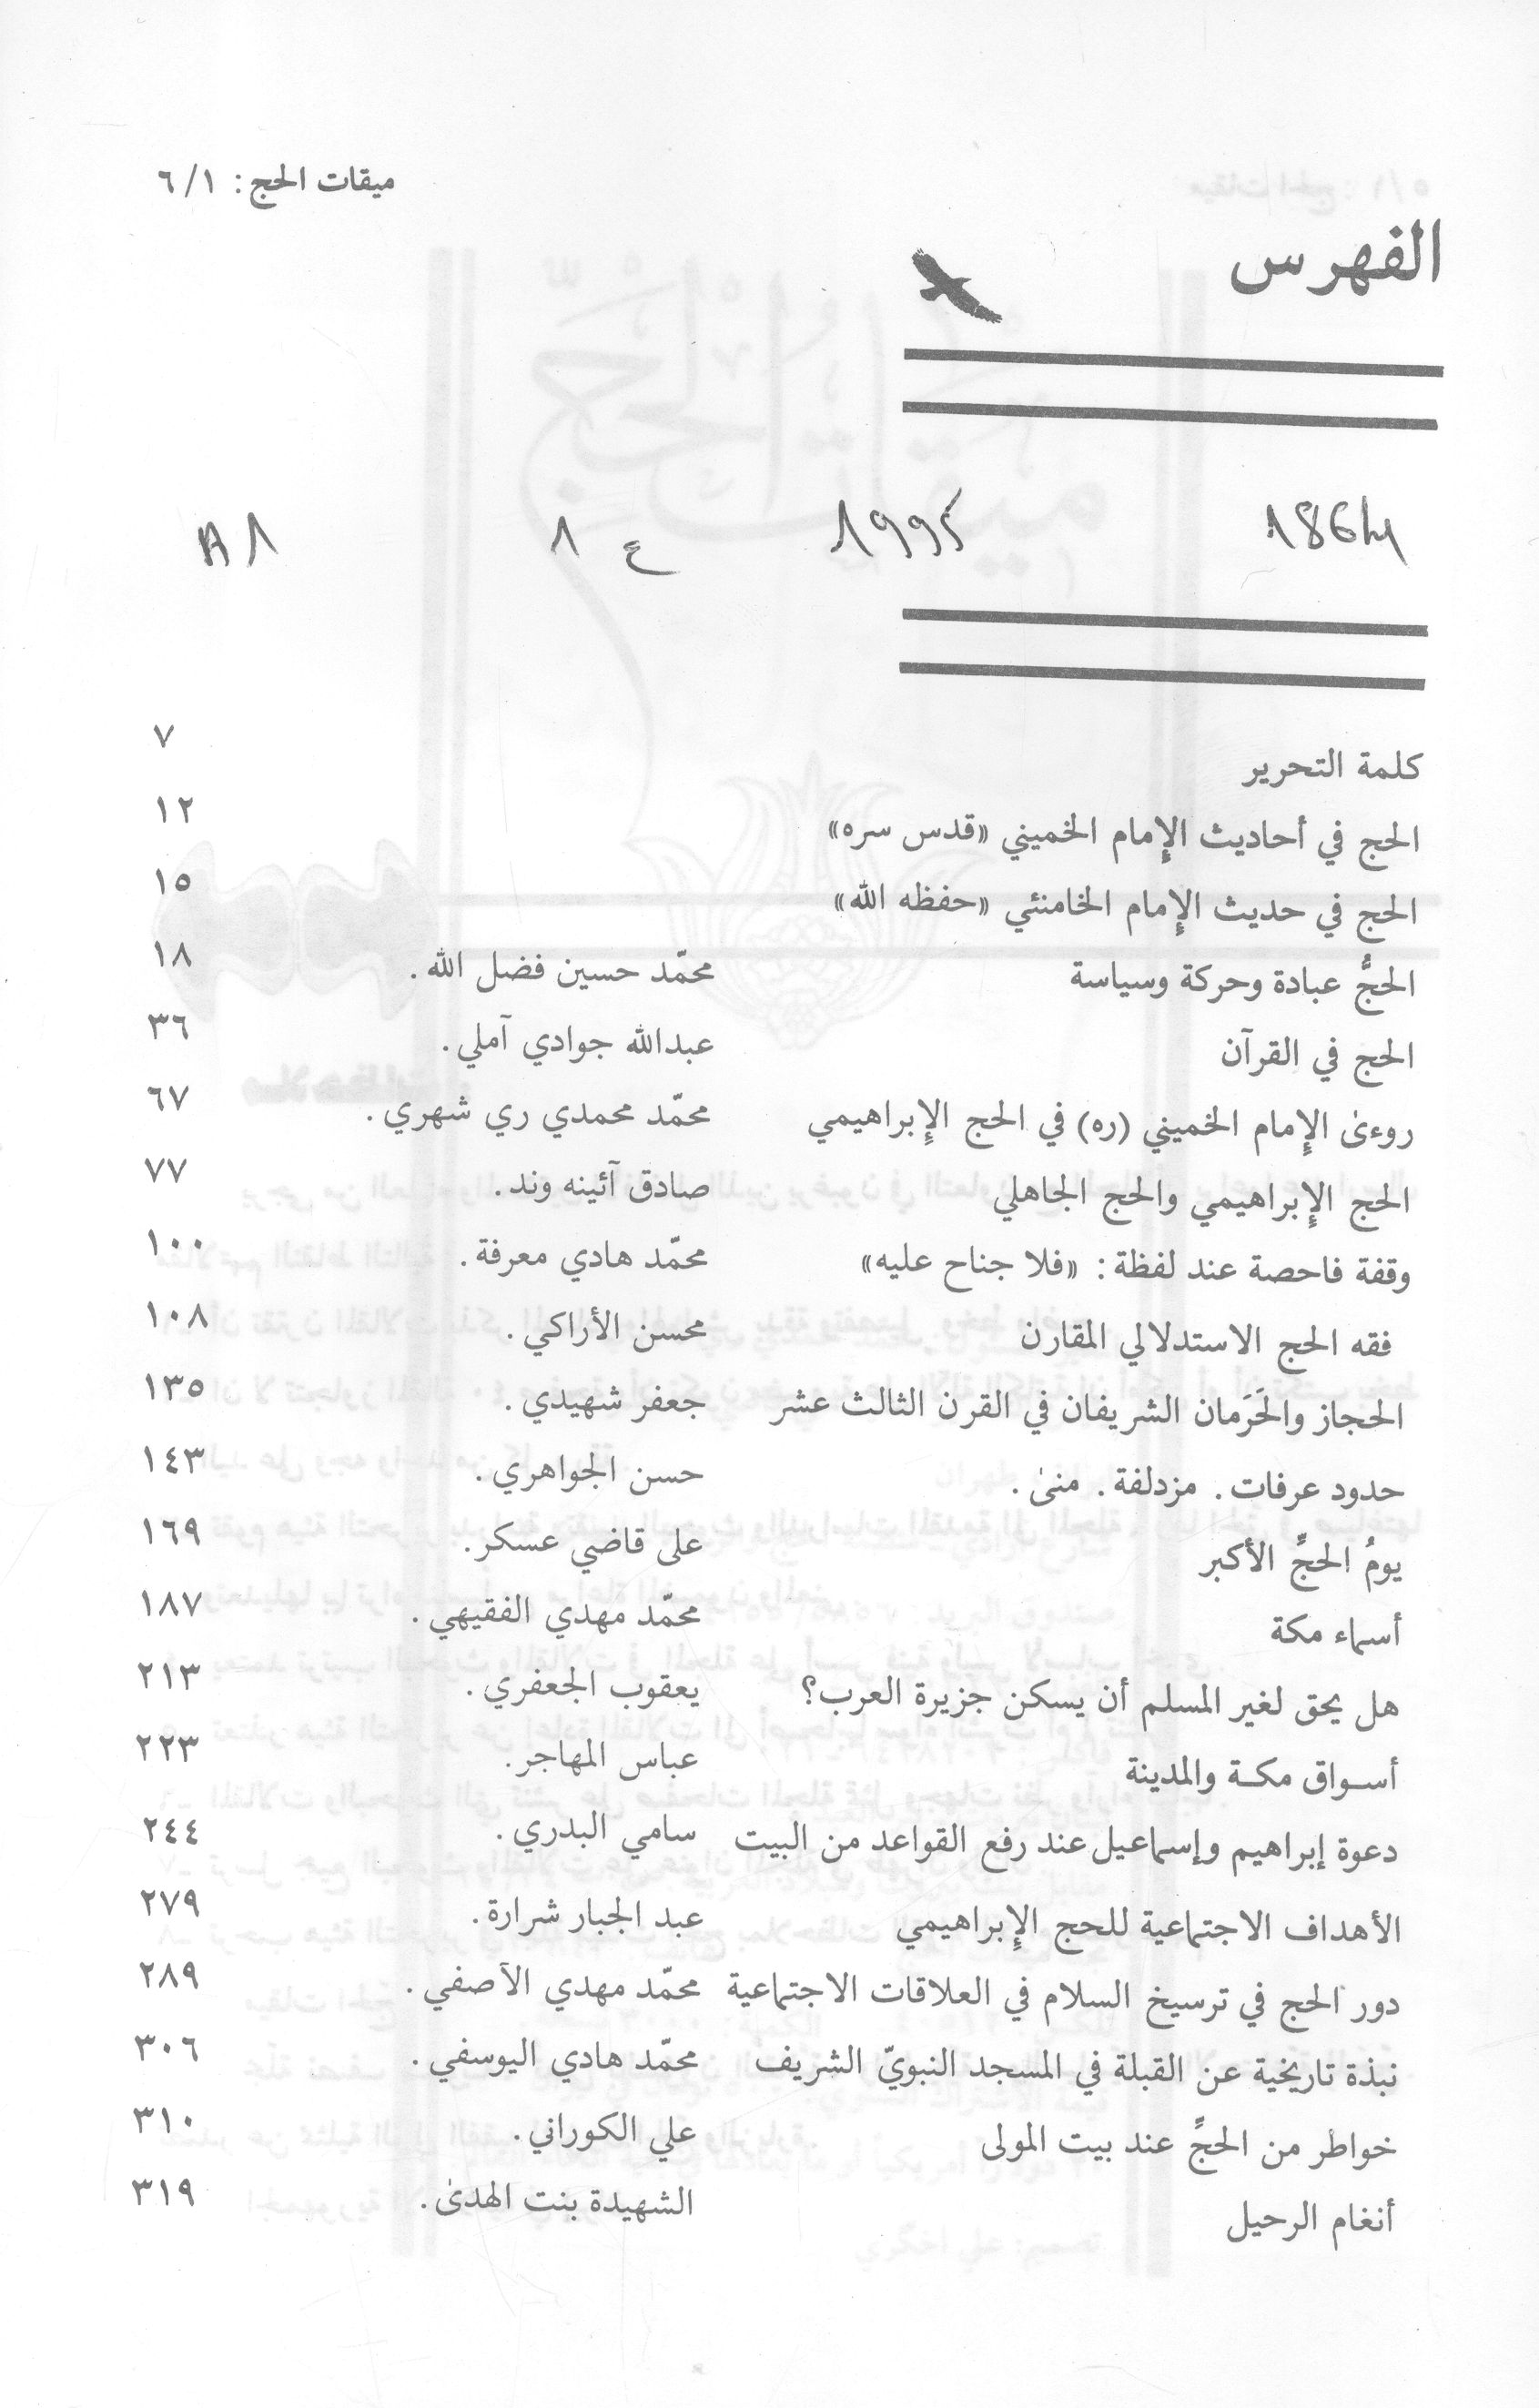 ميقات الحج: ٦/١
الفهرس
1995 ع ١
كلمة التحرير ٧
الحج في أحاديث الإمام الخميني «قدس سره» ١٢
الحج في حديث الإمام الخامنئي «حفظه الله» ١٥
الحجُّ عبادة وحركة وسياسة محمّد حسين فضل الله. ١٨
الحج في القرآن عبدالله جوادي آملي. ٣٦
روءىٰ الإمام الخميني (ره) في الحج الإبراهيمي محمّد محمدي ري شهري. ٦٧
الحج الإبراهيمي والحج الجاهلي صادق آئينه وند. ٧٧
وقفة فاحصة عند لفظة: «فلا جناح عليه» محمّد هادي معرفة. ١٠٠
فقه الحج الاستدلالي المقارن محسن الأراكي. ١٠٨
الحجاز والحَرَمان الشريفان في القرن الثالث عشر جعفر شهيدي. ١٣٥
حدود عرفات. مزدلفة. منىٰ. حسن الجواهري. ١٤٣
يومُ الحجِّ الأكبر على قاضي عسكر. ١٦٩
أسماء مكة محمّد مهدي الفقيهي. ١٨٧
هل يحق لغير المسلم أن يسكن جزيرة العرب؟ يعقوب الجعفري. ٢١٣
أسـواق مكـة والمدينة عباس المهاجر. ٢٢٣
دعوة إبراهيم وإسماعيل عند رفع القواعد من البيت سامي البدري. ٢٤٤
الأهداف الاجتماعية للحج الإبراهيمي عبد الجبار شرارة. ٢٧٩
دور الحج في ترسيخ السلام في العلاقات الاجتماعية محمّد مهدي الآصفي. ٢٨٩
نبذة تاريخية عن القبلة في المسجد النبويّ الشريف محمّد هادي اليوسفي. ٣٠٦
خواطر من الحجِّ عند بيت المولى علي الكوراني. ٣١٠
أنغام الرحيل الشهيدة بنت الهدىٰ. ٣١٩